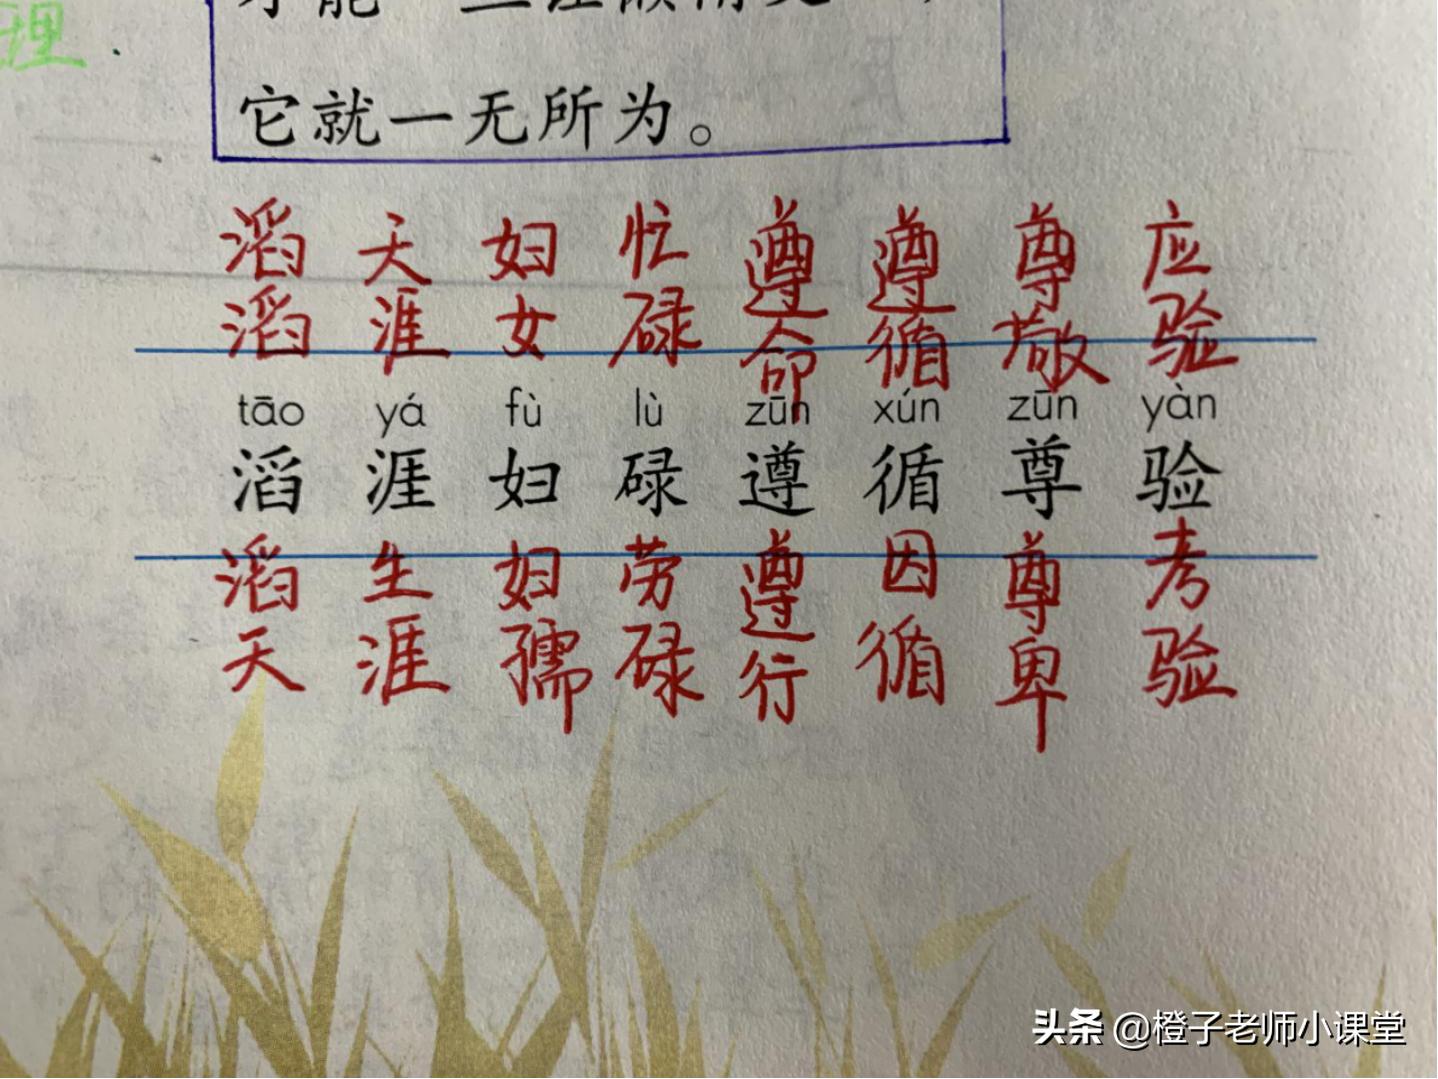 理
它就一无所为。
滔滔 天涯 妇女 忙碌 遵命 遵循 尊敬 应验
tāo yá fù lù zūn xún zūn yàn
滔 涯 妇 碌 遵 循 尊 验
滔天 生涯 妇孺 劳碌 遵行 因循 尊卑 考验
头条 @橙子老师小课堂